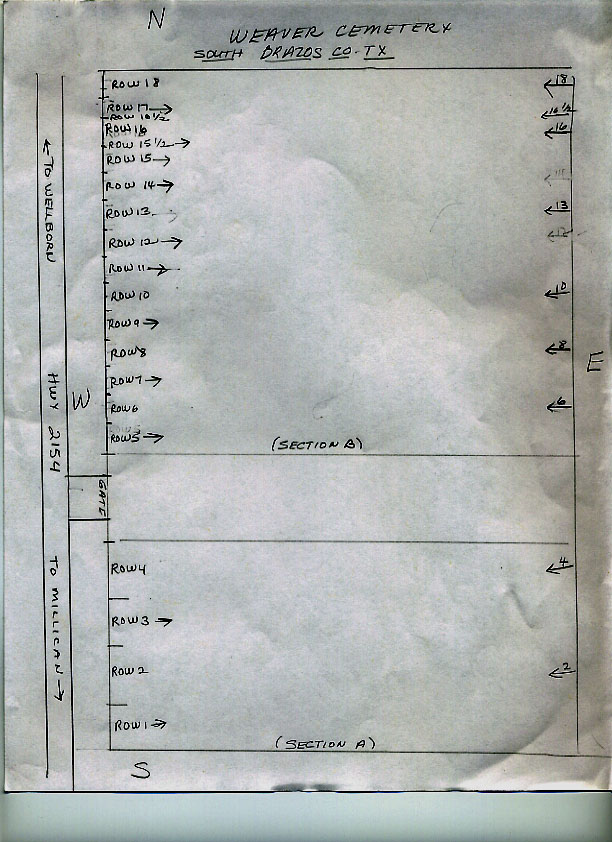 N
WEAVER CEMETERY
SOUTH BRAZOS CO-TX
ROW 18
18
ROW 17
ROW 16 1/2
16 1/2
ROW 16
16
ROW 15 1/2
ROW 15
ROW 14
ROW 13
13
ROW 12
ROW 11
ROW 10
10
ROW 9
ROW 8
8
E
ROW 7
ROW 6
6
W
ROW 5
(SECTION B)
GATE
TO WELLBORN
HWY 2154
TO MILLICAN
ROW 4
4
ROW 3
ROW 2
2
ROW 1
(SECTION A)
S